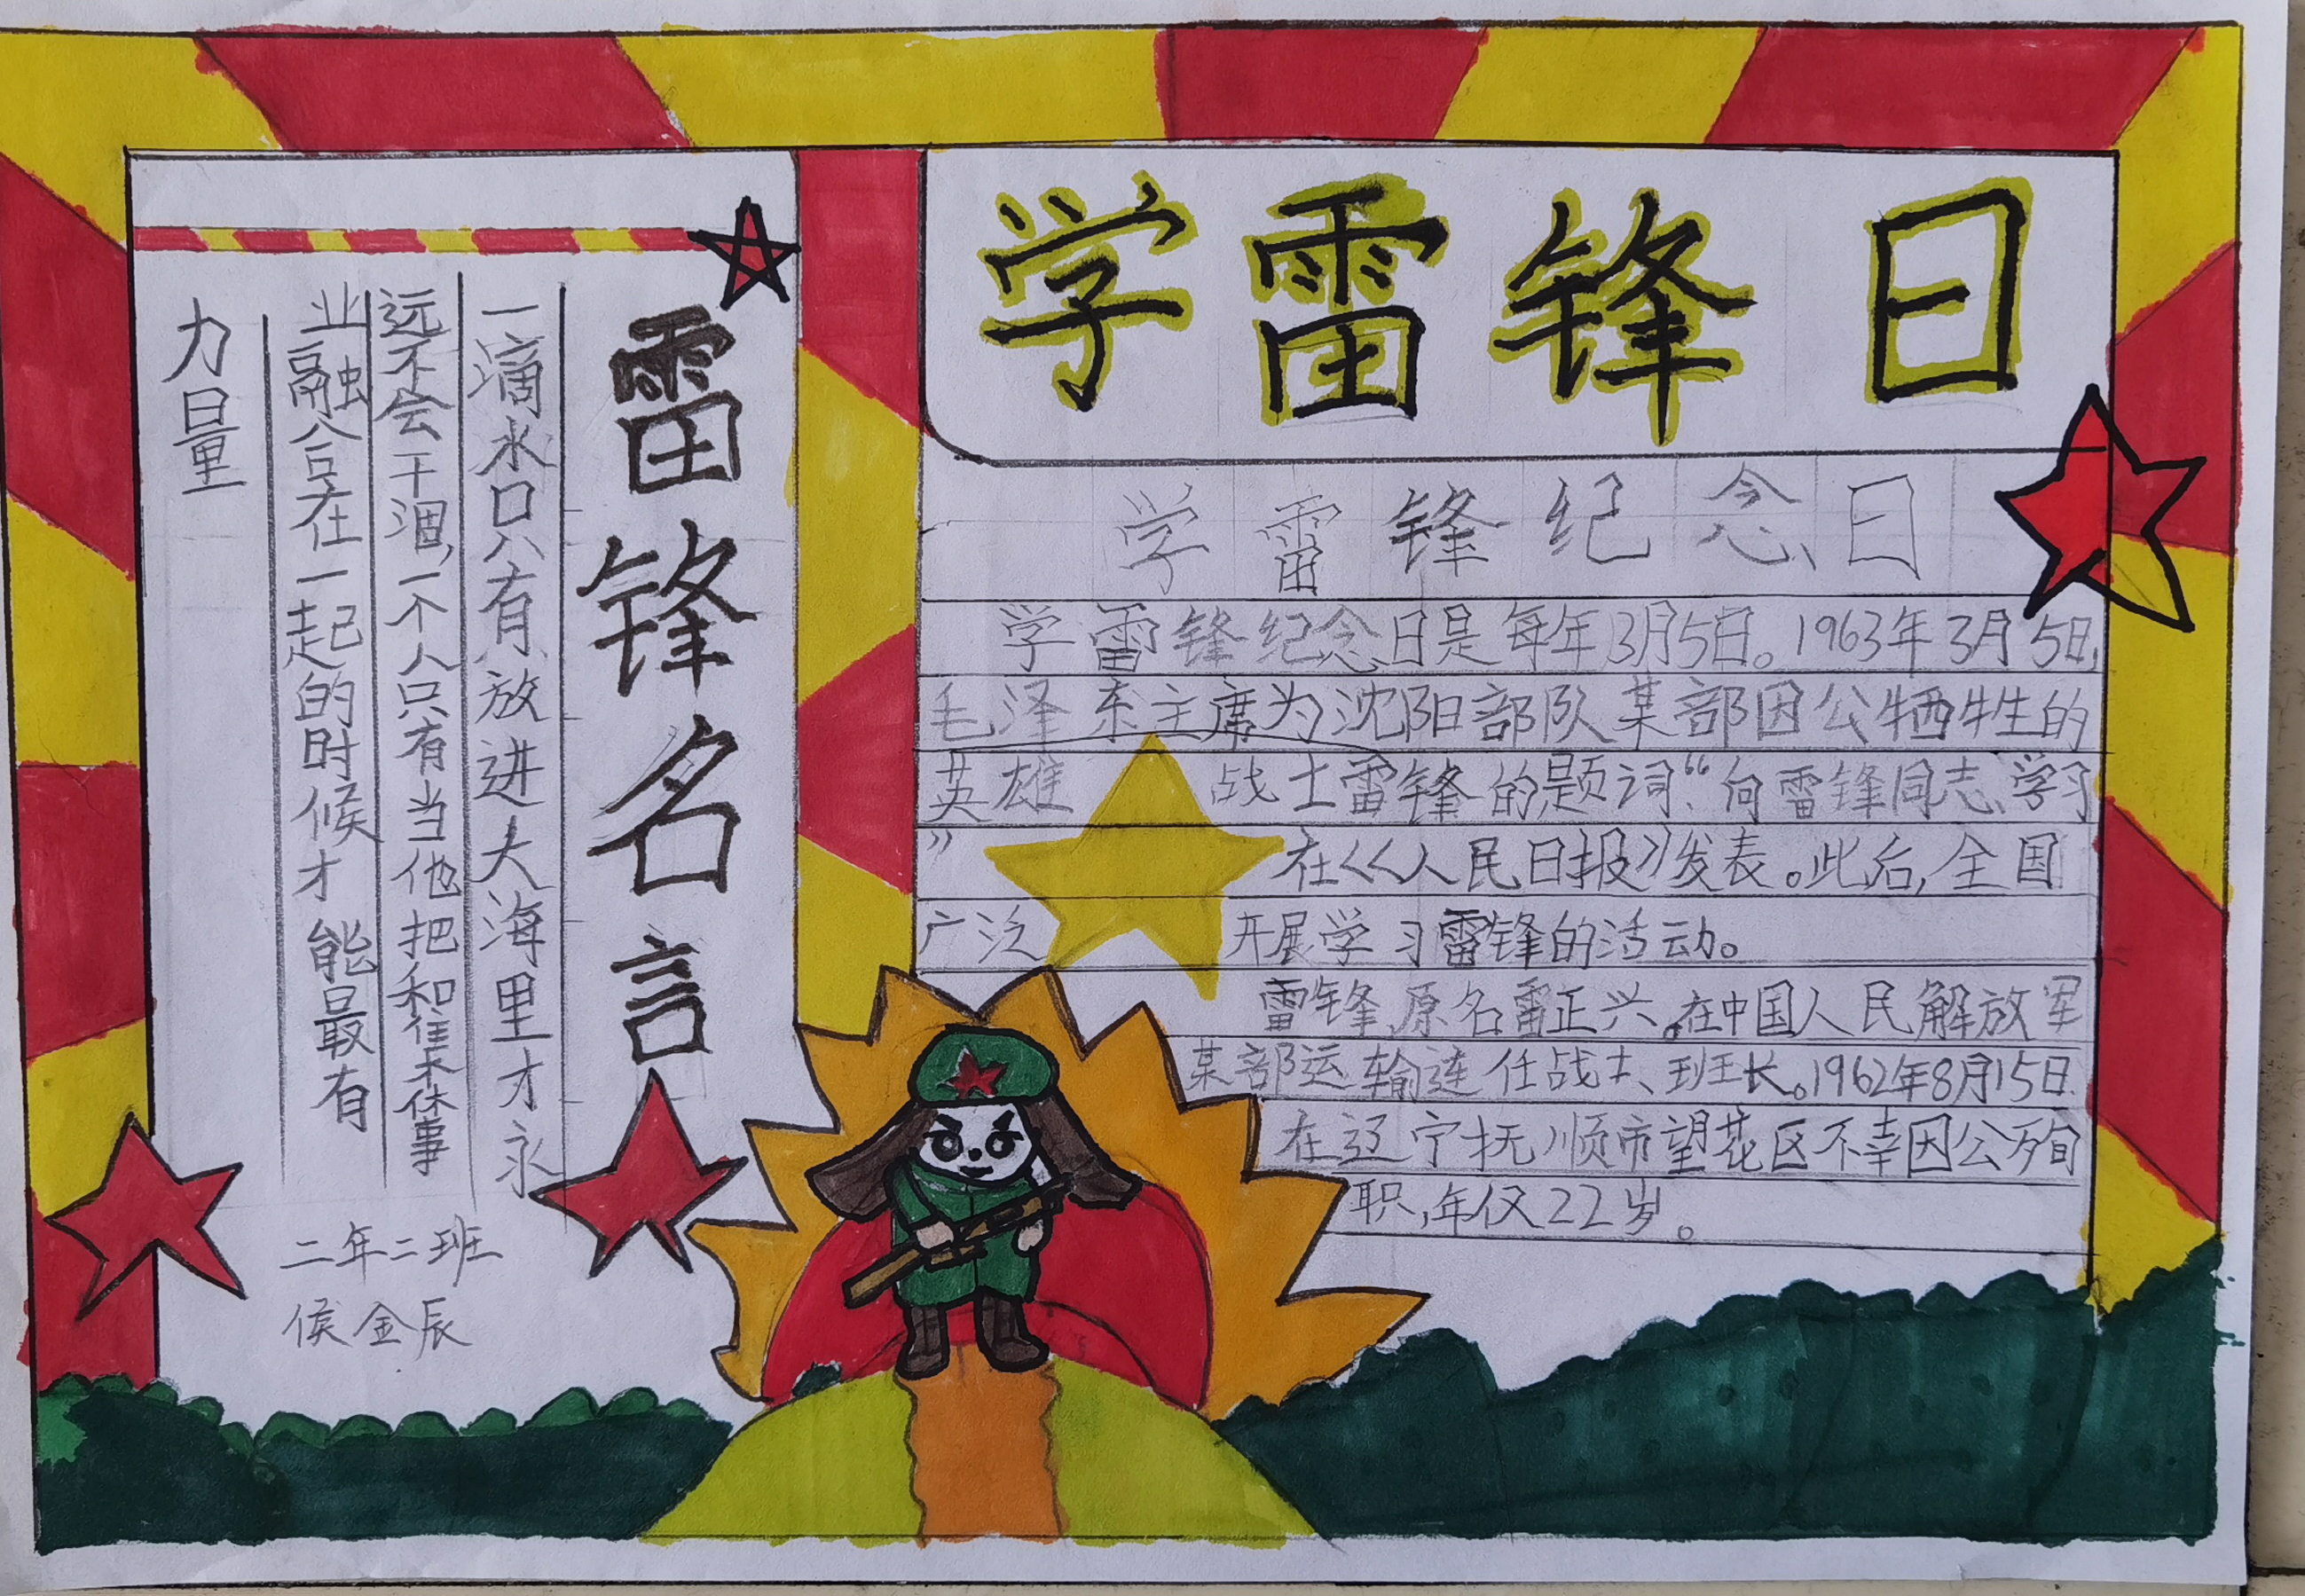 学雷锋日
学雷锋纪念日
学雷锋纪念日是每年3月5日。1963年3月5日,
毛泽东主席为沈阳部队某部因公牺牲的
英雄战士雷锋的题词“向雷锋同志学习
”在《人民日报》发表。此后,全国
广泛开展学习雷锋的活动。
雷锋,原名雷正兴。在中国人民解放军
某部运输连任战士、班长。1962年8月15日
在辽宁抚顺市望花区不幸因公殉
职,年仅22岁。
雷锋名言
一滴水只有放进大海里才永
远不会干涸,一个人只有当他把和集体事
业融合在一起的时候才能最有
力量
二年二班
侯金辰